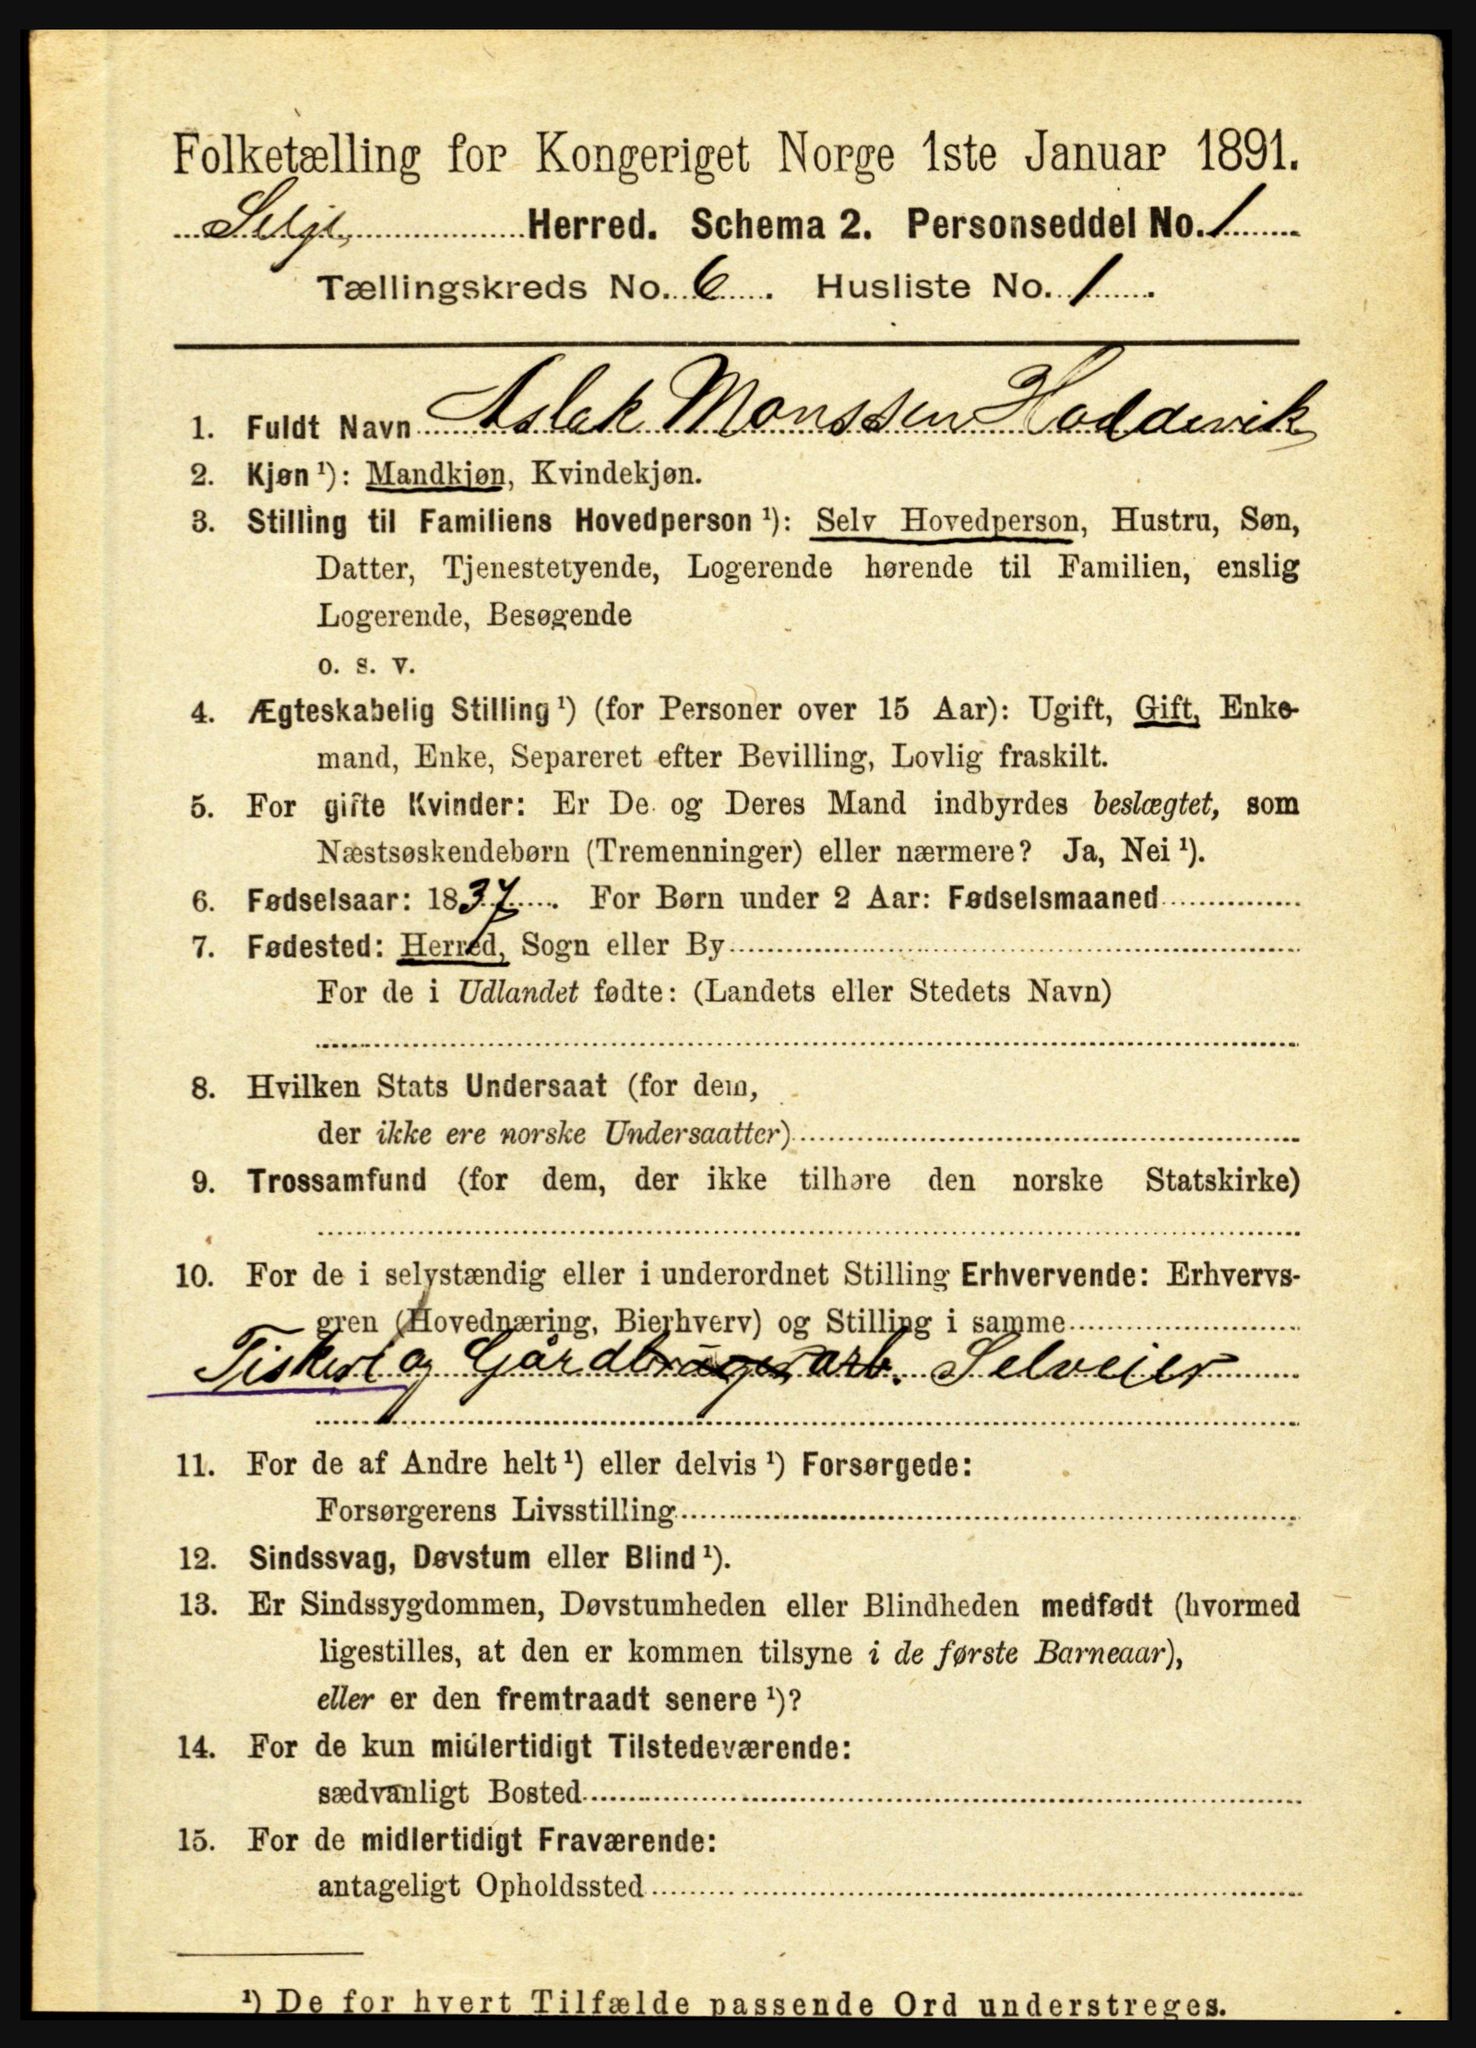 Folketælling for Kongeriget Norge 1ste Januar 1891.
Selje Herred. Schema 2. Personseddel No. 1
Tællingskreds No. 6. Husliste No. 1.
1. Fuldt Navn Aslak Monssen Hoddevik
2. Kjøn ¹): Mandkjøn, Kvindekjøn.
3. Stilling til Familiens Hovedperson ¹): Selv Hovedperson, Hustru, Søn,
Datter, Tjenestetyende, Logerende hørende til Familien, enslig
Logerende, Besøgende
o. s. v.
4. Ægteskabelig Stilling ¹) (for Personer over 15 Aar): Ugift, Gift, Enke-
mand, Enke, Separeret efter Bevilling, Lovlig fraskilt.
5. For gifte Kvinder: Er De og Deres Mand indbyrdes beslægtet, som
Næstsøskendebørn (Tremenninger) eller nærmere? Ja, Nei ¹).
6. Fødselsaar: 1837. For Børn under 2 Aar: Fødselsmaaned
7. Fødested: Herred, Sogn eller By
For de i Udlandet fødte: (Landets eller Stedets Navn)
8. Hvilken Stats Undersaat (for dem,
der ikke ere norske Undersaatter)
9. Trossamfund (for dem, der ikke tilhøre den norske Statskirke)
10. For de i selvstændig eller i underordnet Stilling Erhvervende: Erhvervs-
gren (Hovednæring, Bierhverv) og Stilling i samme
og Gårdbruger arb. Selveier
11. For de af Andre helt ¹) eller delvis ¹) Forsørgede:
Forsørgerens Livsstilling
12. Sindssvag, Døvstum eller Blind ¹).
13. Er Sindssygdommen, Døvstumheden eller Blindheden medfødt (hvormed
ligestilles, at den er kommen tilsyne i de første Barneaar),
eller er den fremtraadt senere ¹)?
14. For de kun midlertidigt Tilstedeværende:
sædvanligt Bosted
15. For de midlertidigt Fraværende:
antageligt Opholdssted
¹) De for hvert Tilfælde passende Ord understreges.